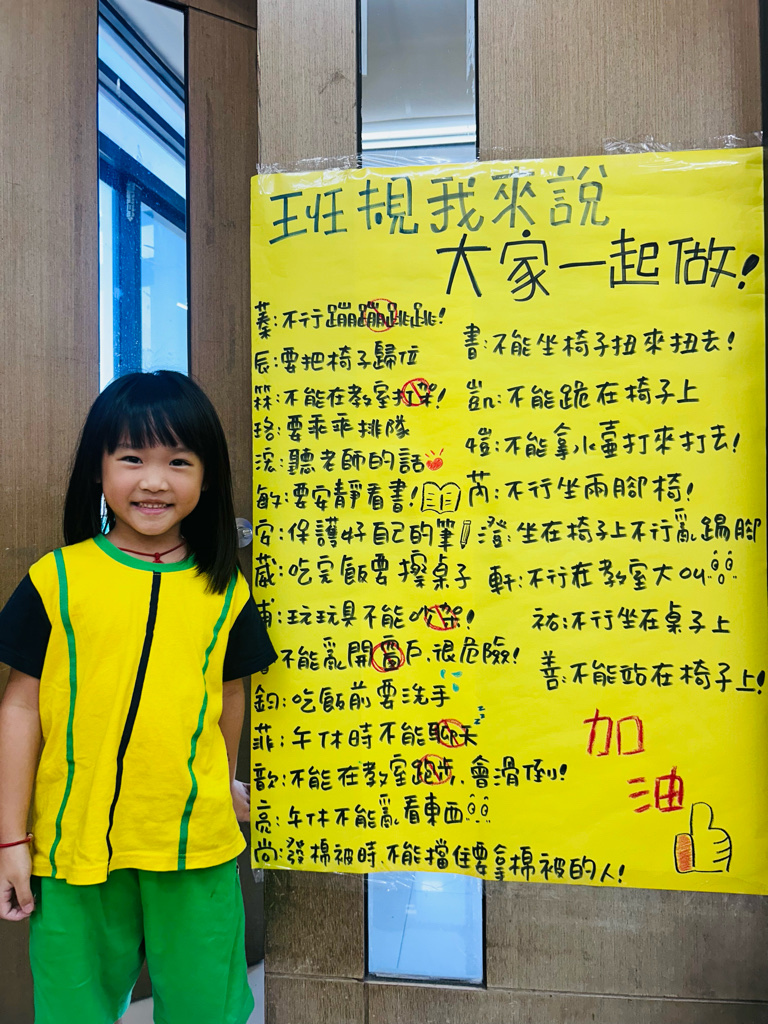 班規我來說
大家一起做!
蓁:不行蹦蹦跳跳!
辰:要把椅子歸位
箖:不能在教室打架!
珞:要乖乖排隊
浤:聽老師的話
敏:要安靜看書!
安:保護好自己的筆
葳:吃完飯要擦桌子
玩玩具不能吵架!
不能亂開窗戶,很危險!
鈞:吃飯前要洗手
菲:午休時不能聊天
歆:不能在教室跑步,會滑倒!
亮:午休不能亂看東西
尚:發棉被時,不能擋住要拿棉被的人!
書:不能坐椅子扭來扭去!
凱:不能跪在椅子上
愷:不能拿水壺打來打去!
芮:不行坐兩腳椅!
澄:坐在椅子上不行亂踢腳
軒:不行在教室大叫
祐:不行坐在桌子上
善:不能站在椅子上!
加
油